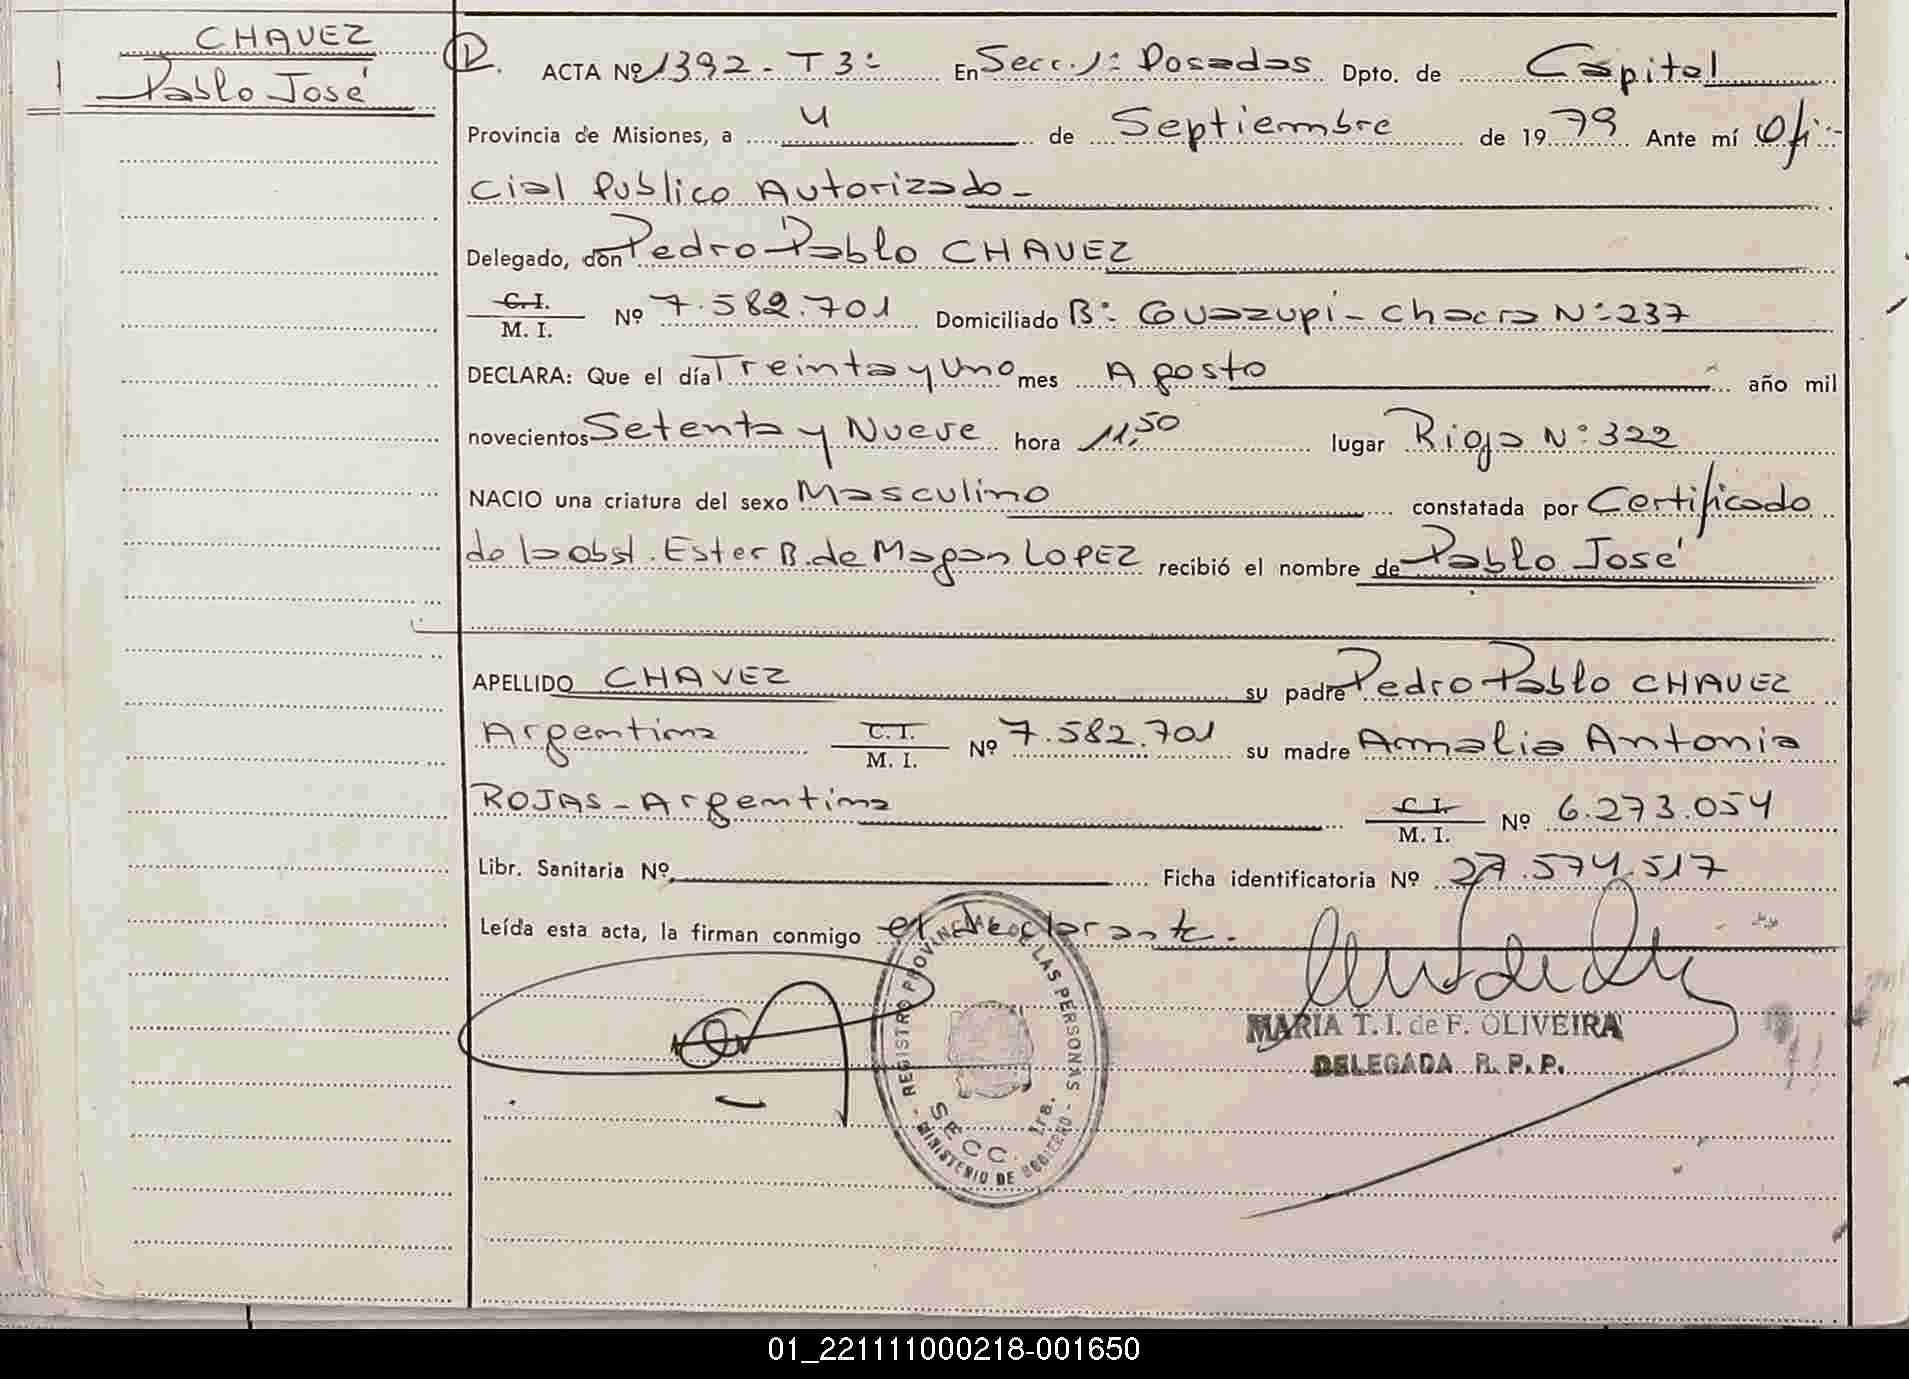 CHAVEZ
Pablo José
D. ACTA Nº 1392 - T3º En Secc. 1º Posadas Dpto. de Capital
Provincia de Misiones, a 4 de Septiembre de 1979 Ante mí Ofi-
cial Publico Autorizado -
Delegado, don Pedro Pablo CHAVEZ
C.I. M. I. Nº 7.582.701 Domiciliado Bº Guazupi - Chacra Nº 237
DECLARA: Que el día Treinta y Uno mes Agosto año mil
novecientos Setenta y Nueve hora 11,50 lugar Rioja Nº 322
NACIO una criatura del sexo Masculino constatada por Certificado
de la obst. Ester B. de Magan LOPEZ recibió el nombre de Pablo José
APELLIDO CHAVEZ su padre Pedro Pablo CHAVEZ
Argentina C.I. M. I. Nº 7.582.701 su madre Amalia Antonia
ROJAS - Argentina C.I. M. I. Nº 6.273.054
Libr. Sanitaria Nº Ficha identificatoria Nº 27.574.517
Leída esta acta, la firman conmigo el declarante.
REGISTRO PROVINCIAL DE LAS PERSONAS
SECC. 1ra.
MINISTERIO DE GOBIERNO
MARIA T. I. de F. OLIVEIRA
DELEGADA R. P. P.
01_221111000218-001650